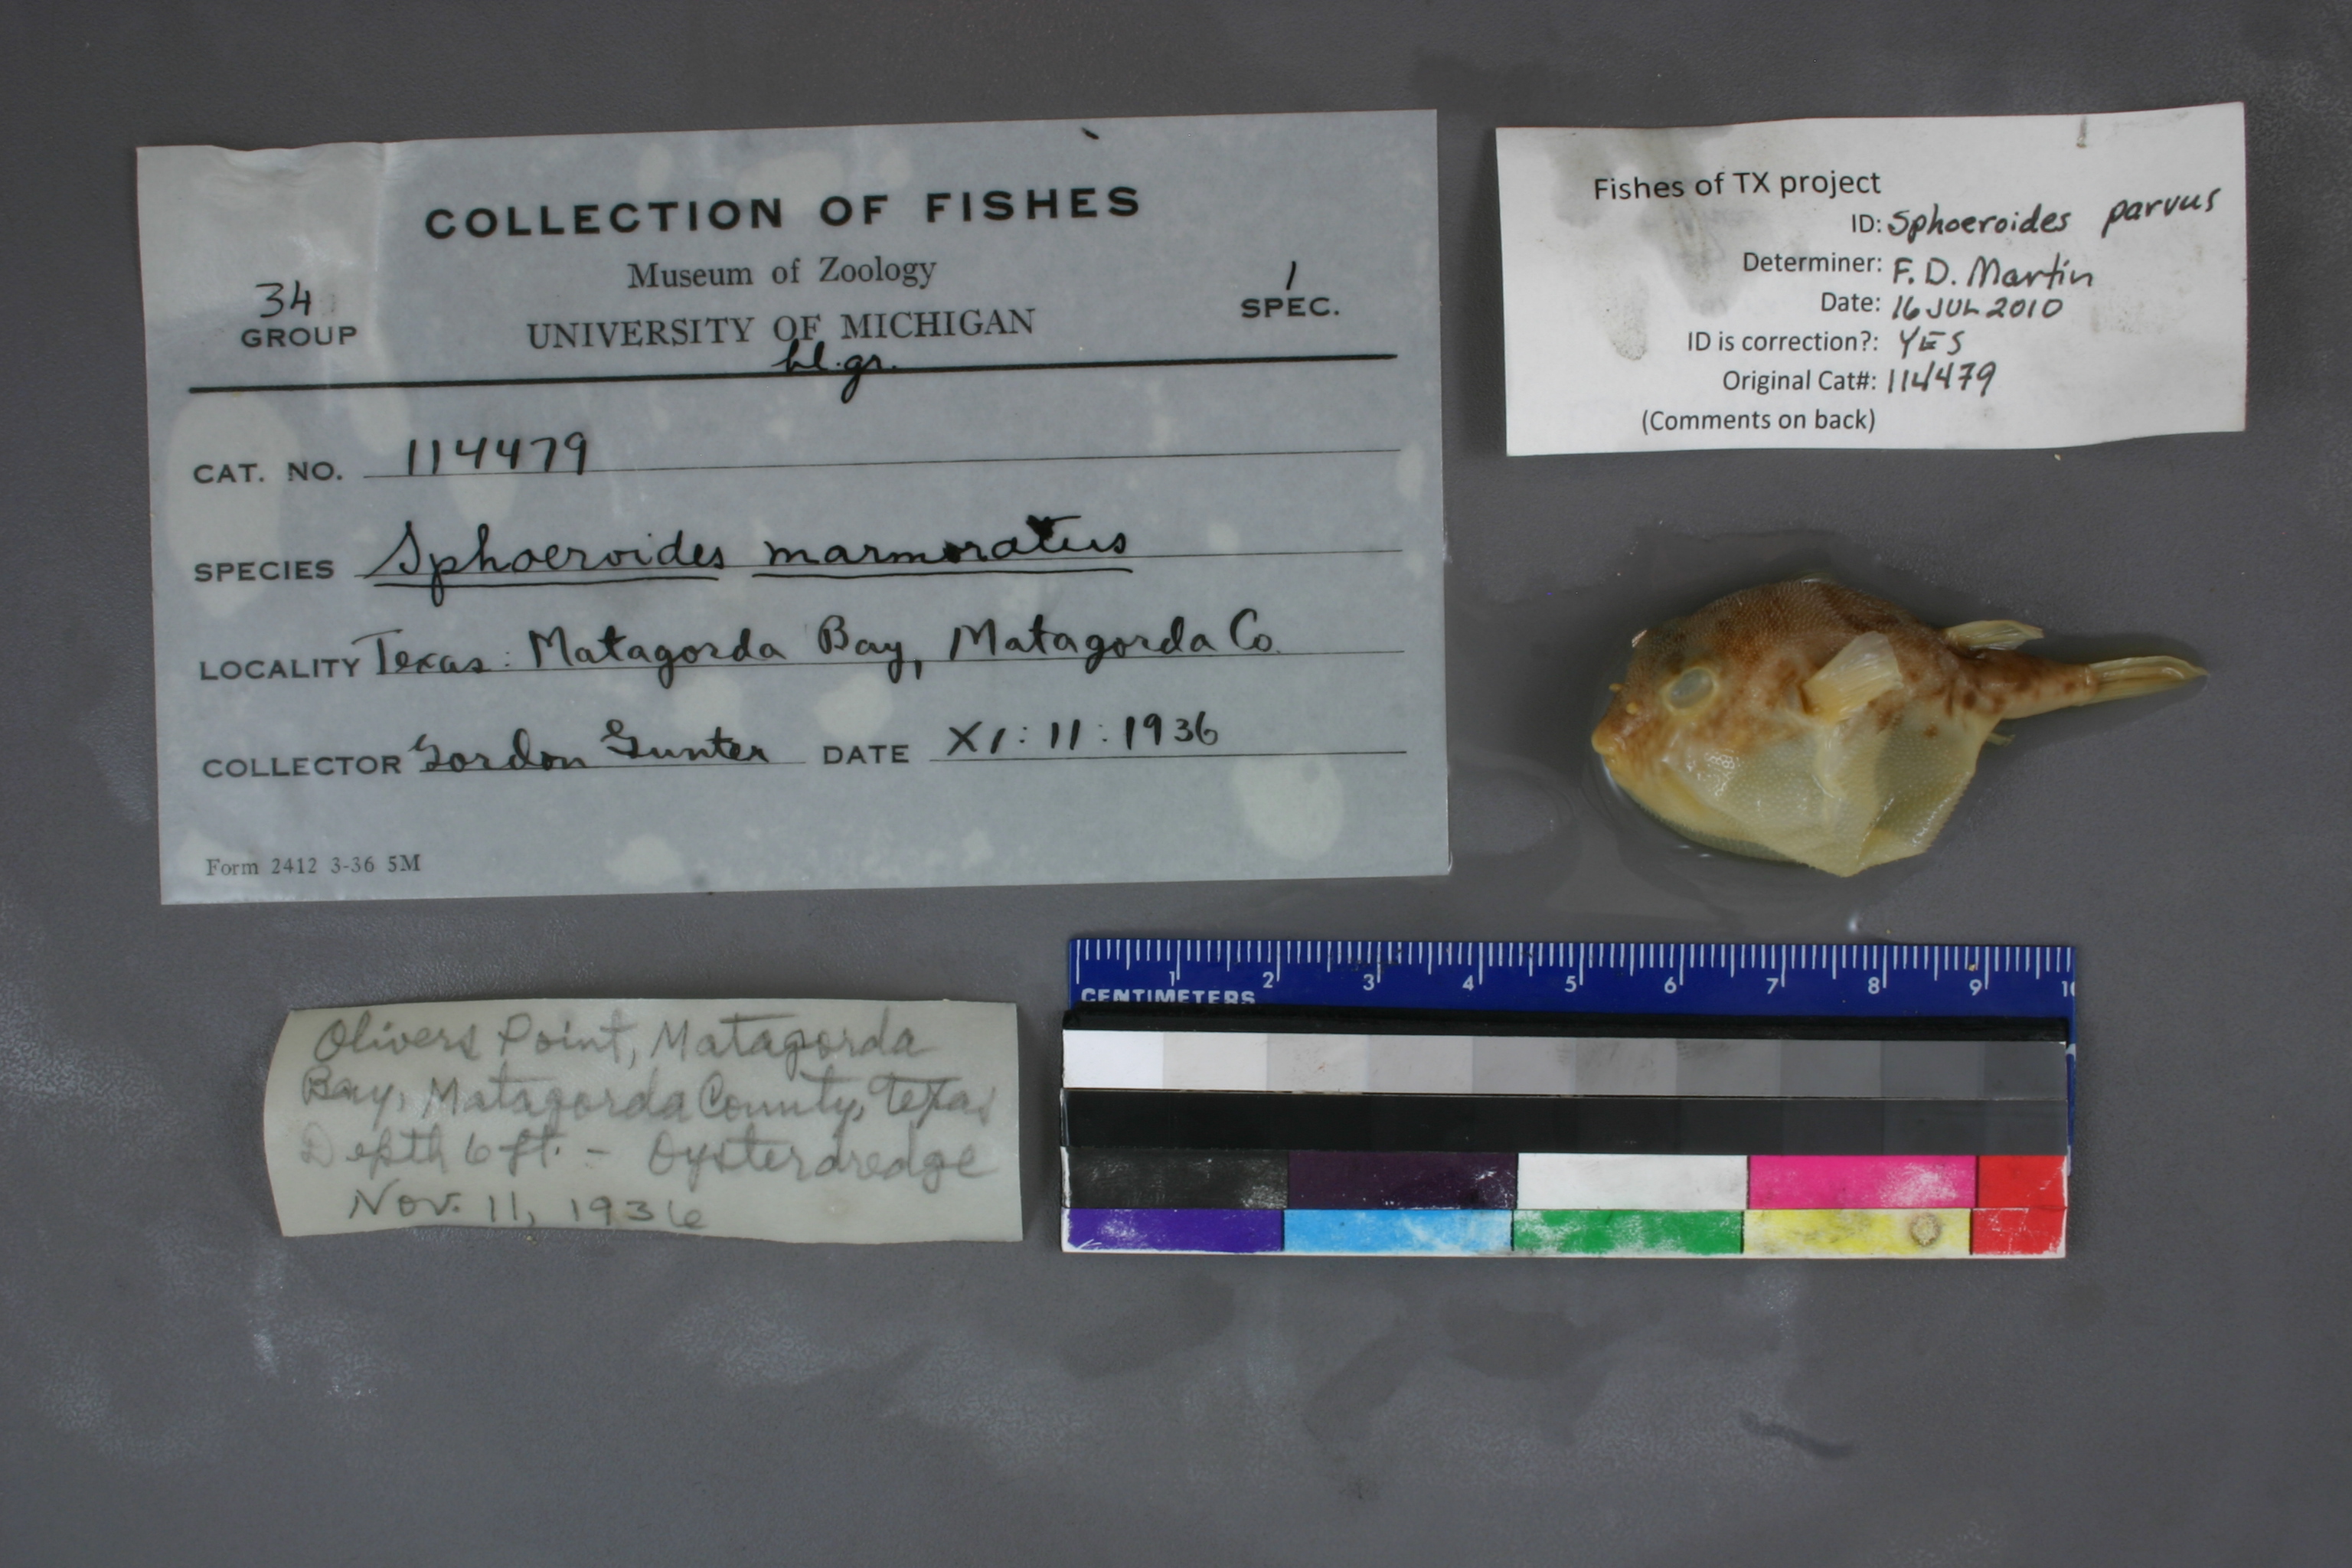 COLLECTION OF FISHES
Museum of Zoology
UNIVERSITY OF MICHIGAN
34
GROUP
1
SPEC.
bl.gr.
CAT. NO. 114479
SPECIES Sphoeroides marmoratus
LOCALITY Texas: Matagorda Bay, Matagorda Co.
COLLECTOR Gordon Gunter DATE XI:11:1936
Form 2412 3-36 5M
Fishes of TX project
ID: Sphoeroides parvus
Determiner: F. D. Martin
Date: 16 JUL 2010
ID is correction?: YES
Original Cat#: 114479
(Comments on back)
Olivers Point, Matagorda
Bay, Matagorda County, Texas
Depth 6 ft. - Oysterdredge
Nov. 11, 1936
1 2 3 4 5 6 7 8 9 10
CENTIMETERS